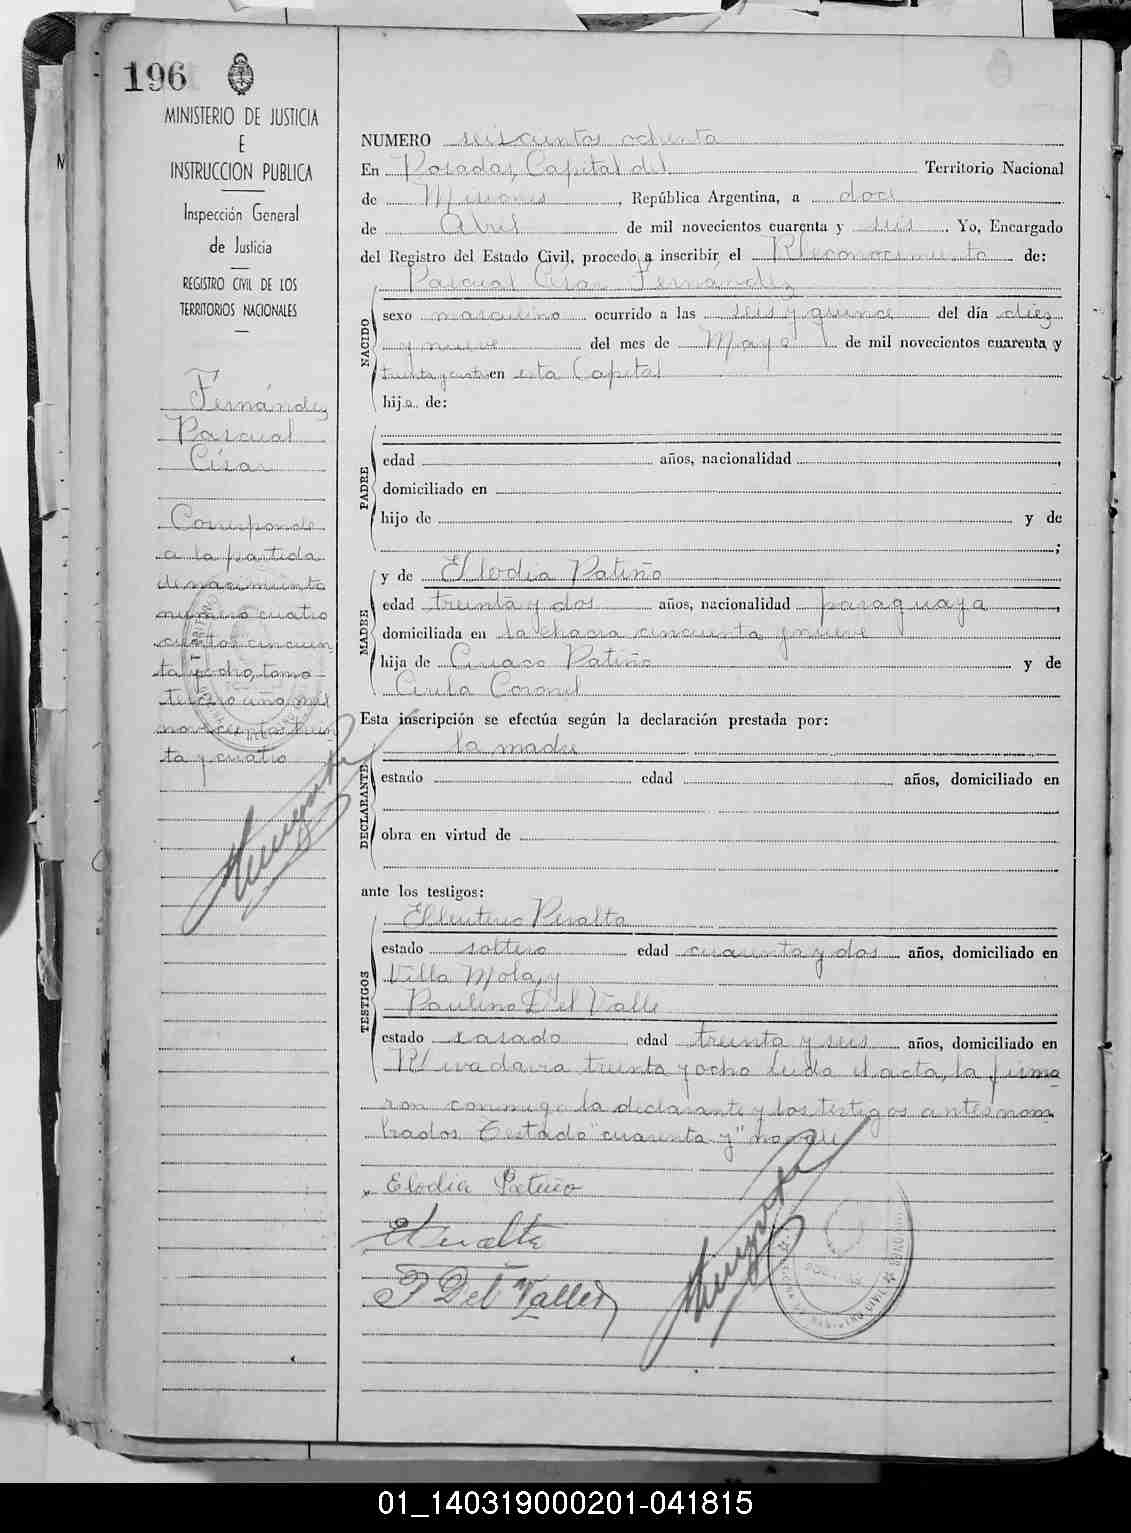 196
MINISTERIO DE JUSTICIA
E
INSTRUCCION PUBLICA
Inspección General
de Justicia
REGISTRO CIVIL DE LOS
TERRITORIOS NACIONALES
Fernández
Pascual
César
Corresponde
a la partida
de nacimiento
número cuatro
cientos cincuen
ta y ocho, tomo
tercero año mil
novecientos trein
ta y cuatro
NUMERO seiscientos ochenta
En Posadas, Capital del Territorio Nacional
de Misiones, República Argentina, a doce
de Abril de mil novecientos cuarenta y seis. Yo, Encargado
del Registro del Estado Civil, procedo a inscribir el Reconocimiento de:
Pascual César Fernández
NACIDO
sexo masculino ocurrido a las seis y quince del día diez
y nueve del mes de Mayo de mil novecientos cuarenta y
treinta y cuatro en esta Capital
hijo de:
PADRE
edad años, nacionalidad ,
domiciliado en
hijo de y de
;
MADRE
y de Elodia Patiño
edad treinta y dos años, nacionalidad paraguaya,
domiciliada en la chacra cincuenta y nueve
hija de Patiño y de
Coronel
Esta inscripción se efectúa según la declaración prestada por:
la madre
DECLARANTE
estado edad años, domiciliado en
obra en virtud de
ante los testigos:
TESTIGOS
Eleuterio Peralta
estado soltero edad cuarenta y dos años, domiciliado en
Villa Mola, y
Paulino Del Valle
estado casado edad treinta y seis años, domiciliado en
Rivadavia treinta y ocho Leída el acta, la firma
ron conmigo la declarante y los testigos antes nom
brados. Testado "cuarenta y" no vale
Elodia Patiño
EPeralta
P Del Valle
01_140319000201-041815